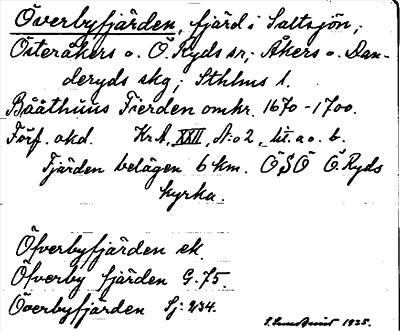 Överbyfjärden, fjärd i Saltsjön;
Österåkers o. Ö. Ryds snr; Åkers o. Dan-
deryds skg; Sthlms l.
Bååthuus Fierden omkr. 1670-1700.
Förf. okd. Kr. A. XXII, N:o 2, lit. a o. b.
Fjärden belägen 6 km. ÖSÖ Ö. Ryds
kyrka.
Öfverbyfjärden ek.
Öfverby fjärden G. 75.
Överbyfjärden Sj: 234.
1935.